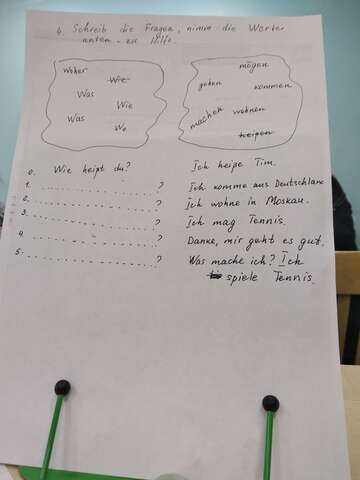 4. Schreib die Fragen, nimm die Wörter
unten zu Hilfe.
woher
Wie
Was
Wie
Was
Wo
mögen
gehen
kommen
machen
wohnen
heißen
0. Wie heißt du? Ich heiße Tim.
1. ....................? Ich komme aus Deutschland
2. ....................? Ich wohne in Moskau.
3. ....................? Ich mag Tennis.
4. ....................? Danke, mir geht es gut.
5. ....................? Was mache ich? Ich
spiele Tennis.